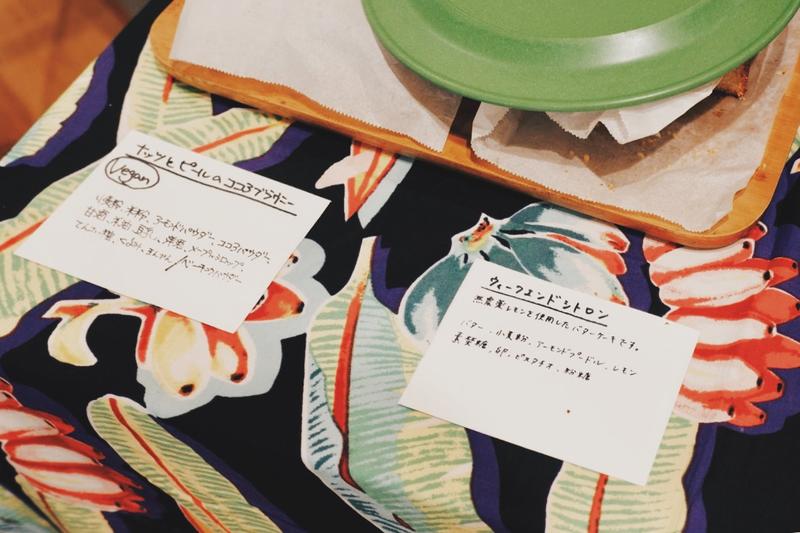 ナッツとピールのココアブラウニー
Vegan
小麦粉、米粉、アーモンドパウダー、ココアパウダー、
甘酒、米油、豆乳、洋酒、メープルシロップ、
てんさい糖、くるみ、
ベーキングパウダー
ウィークエンドシトロン
無農薬レモンを使用したバターケーキです。
バター、小麦粉、アーモンドプードル、レモン
素焚糖、卵、ピスタチオ、粉糖